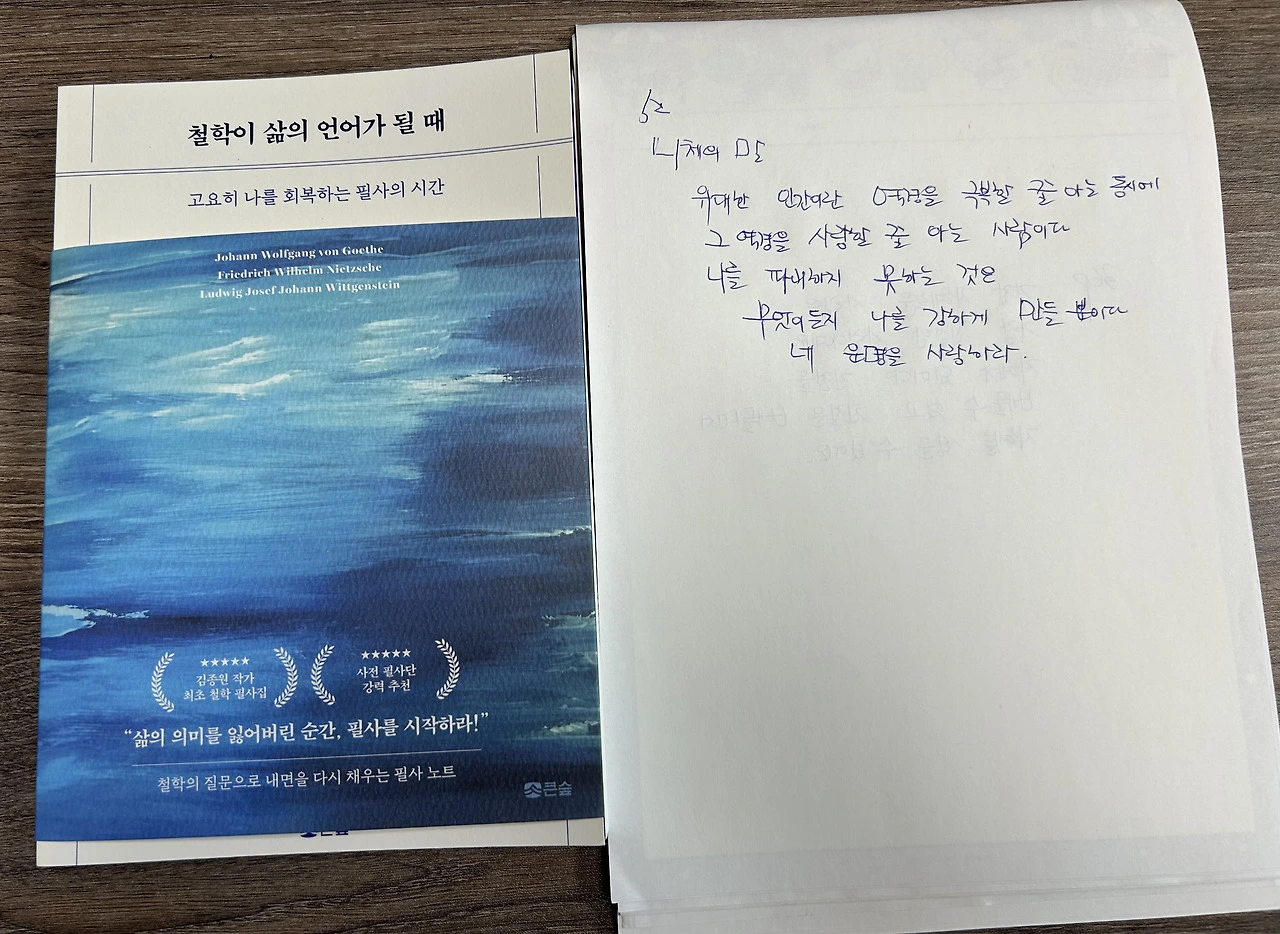 철학이 삶의 언어가 될 때
고요히 나를 회복하는 필사의 시간
Johann Wolfgang von Goethe
Friedrich Wilhelm Nietzsche
Ludwig Josef Johann Wittgenstein
★★★★★
김종원 작가
최초 철학 필사집
★★★★★
사전 필사단
강력 추천
“삶의 의미를 잃어버린 순간, 필사를 시작하라!”
철학의 질문으로 내면을 다시 채우는 필사 노트
큰숲
큰숲
니체의 말
위대한 인간이란 역경을 극복할 줄 아는 동시에
그 역경을 사랑할 줄 아는 사람이다
나를 파괴하지 못하는 것은
무엇이든지 나를 강하게 만들 뿐이다
네 운명을 사랑하라.